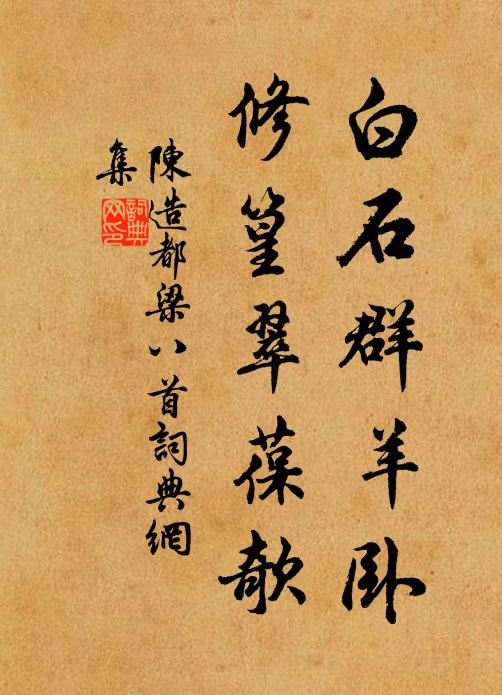 白石群羊臥
修篁翠葆欹
陳造都梁八首詞典網
集
詞典
网印